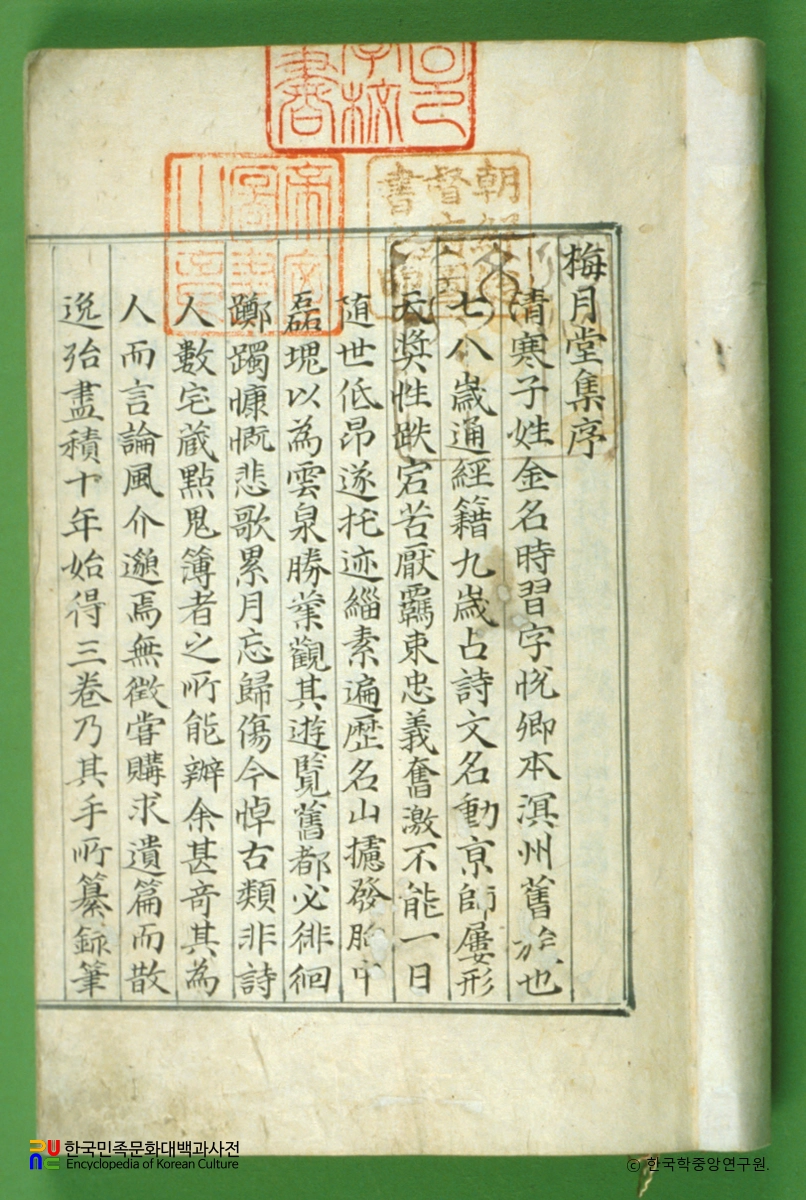 梅月堂集序
清寒子姓金名時習字悅卿本溟州舊族也
七八歲通經籍九歲占詩文名動京師屢形
天奬性跌宕苦厭羈束忠義奮激不能一日
随世低昂遂托迹緇素遍歷名山攄發胸中
磊塊以為雲泉勝業觀其遊覧舊都必徘徊
躑躅慷慨悲歌累月忘歸傷今悼古類非詩
人數宅蔵點鬼簿者之所能辦余甚奇其為
人而言論風介邈焉無徴甞購求遺篇而散
逸殆盡積十年始得三巻乃其手所纂錄筆
한국민족문화대백과사전
Encyclopedia of Korean Culture
© 한국학중앙연구원.